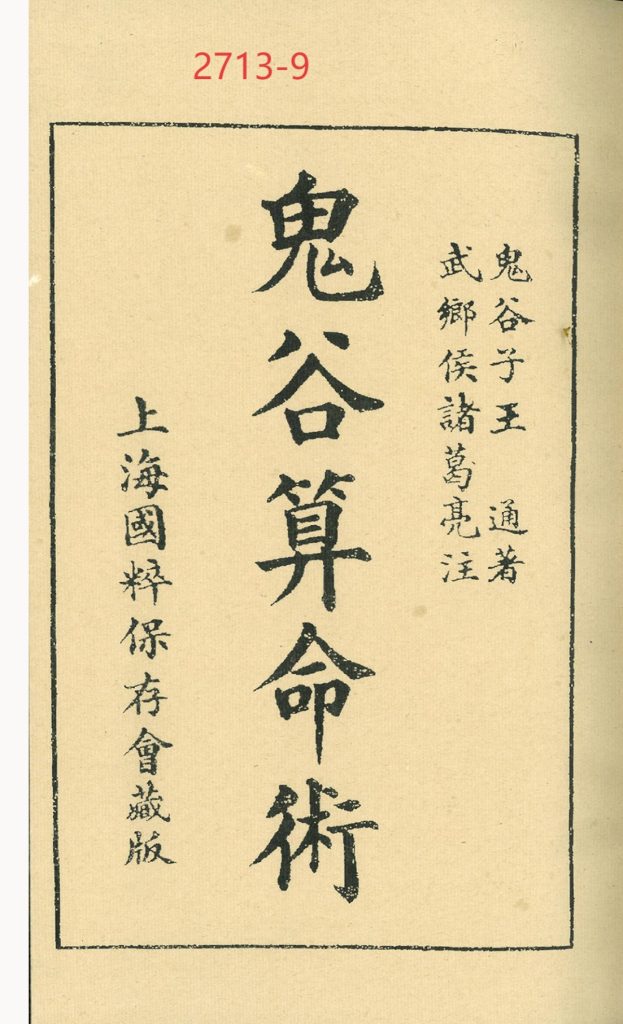 2713-9
鬼谷子王通著
武鄉侯諸葛亮注
鬼谷算命術
上海國粹保存會藏版